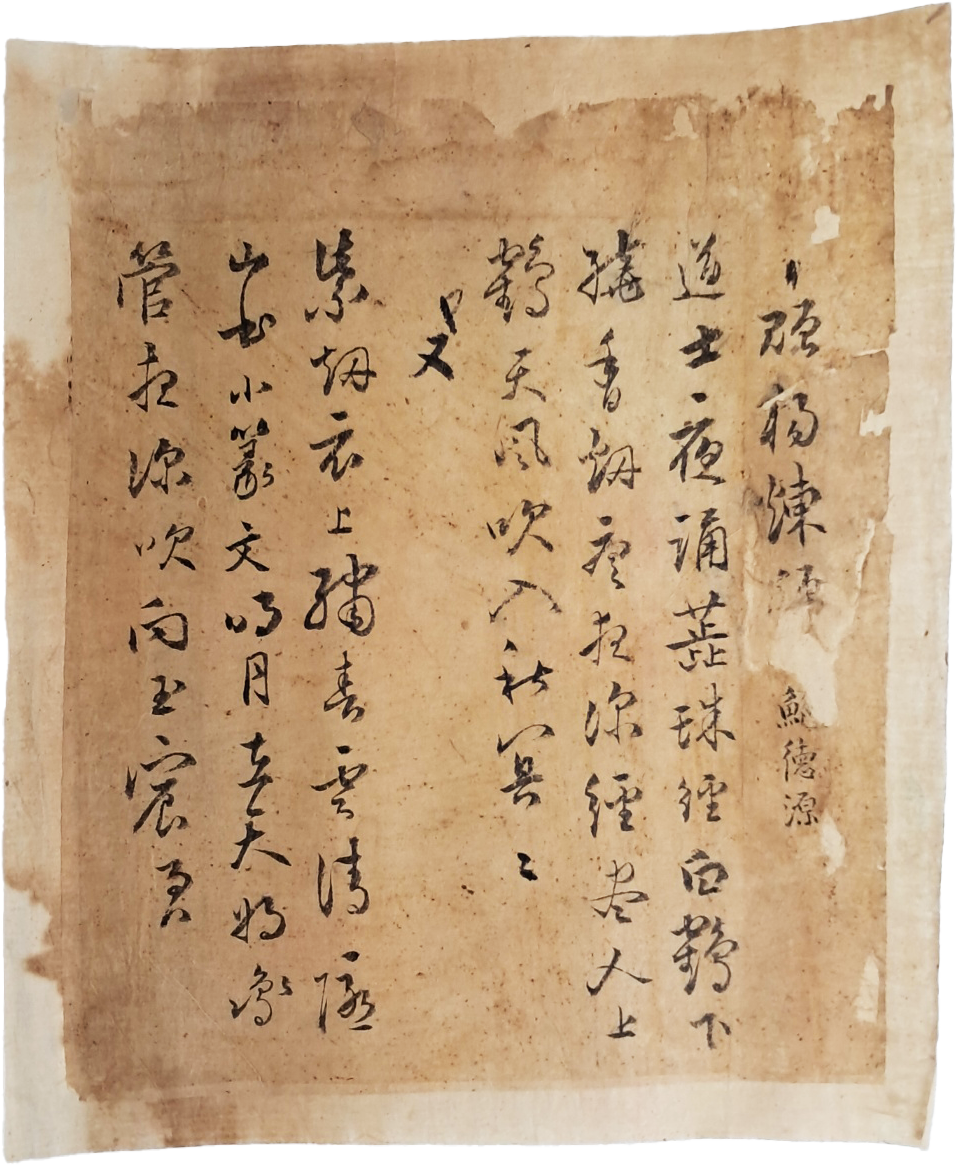 題楊煉師 鮑德源
道士夜誦蕋珠經白鶴下
繞香烟聽夜深經盡人上
鶴天風吹入秋冥〻
又
紫烟衣上繡春雲清隱
山書小篆文明月在天將鳳
管夜深吹向玉宸君